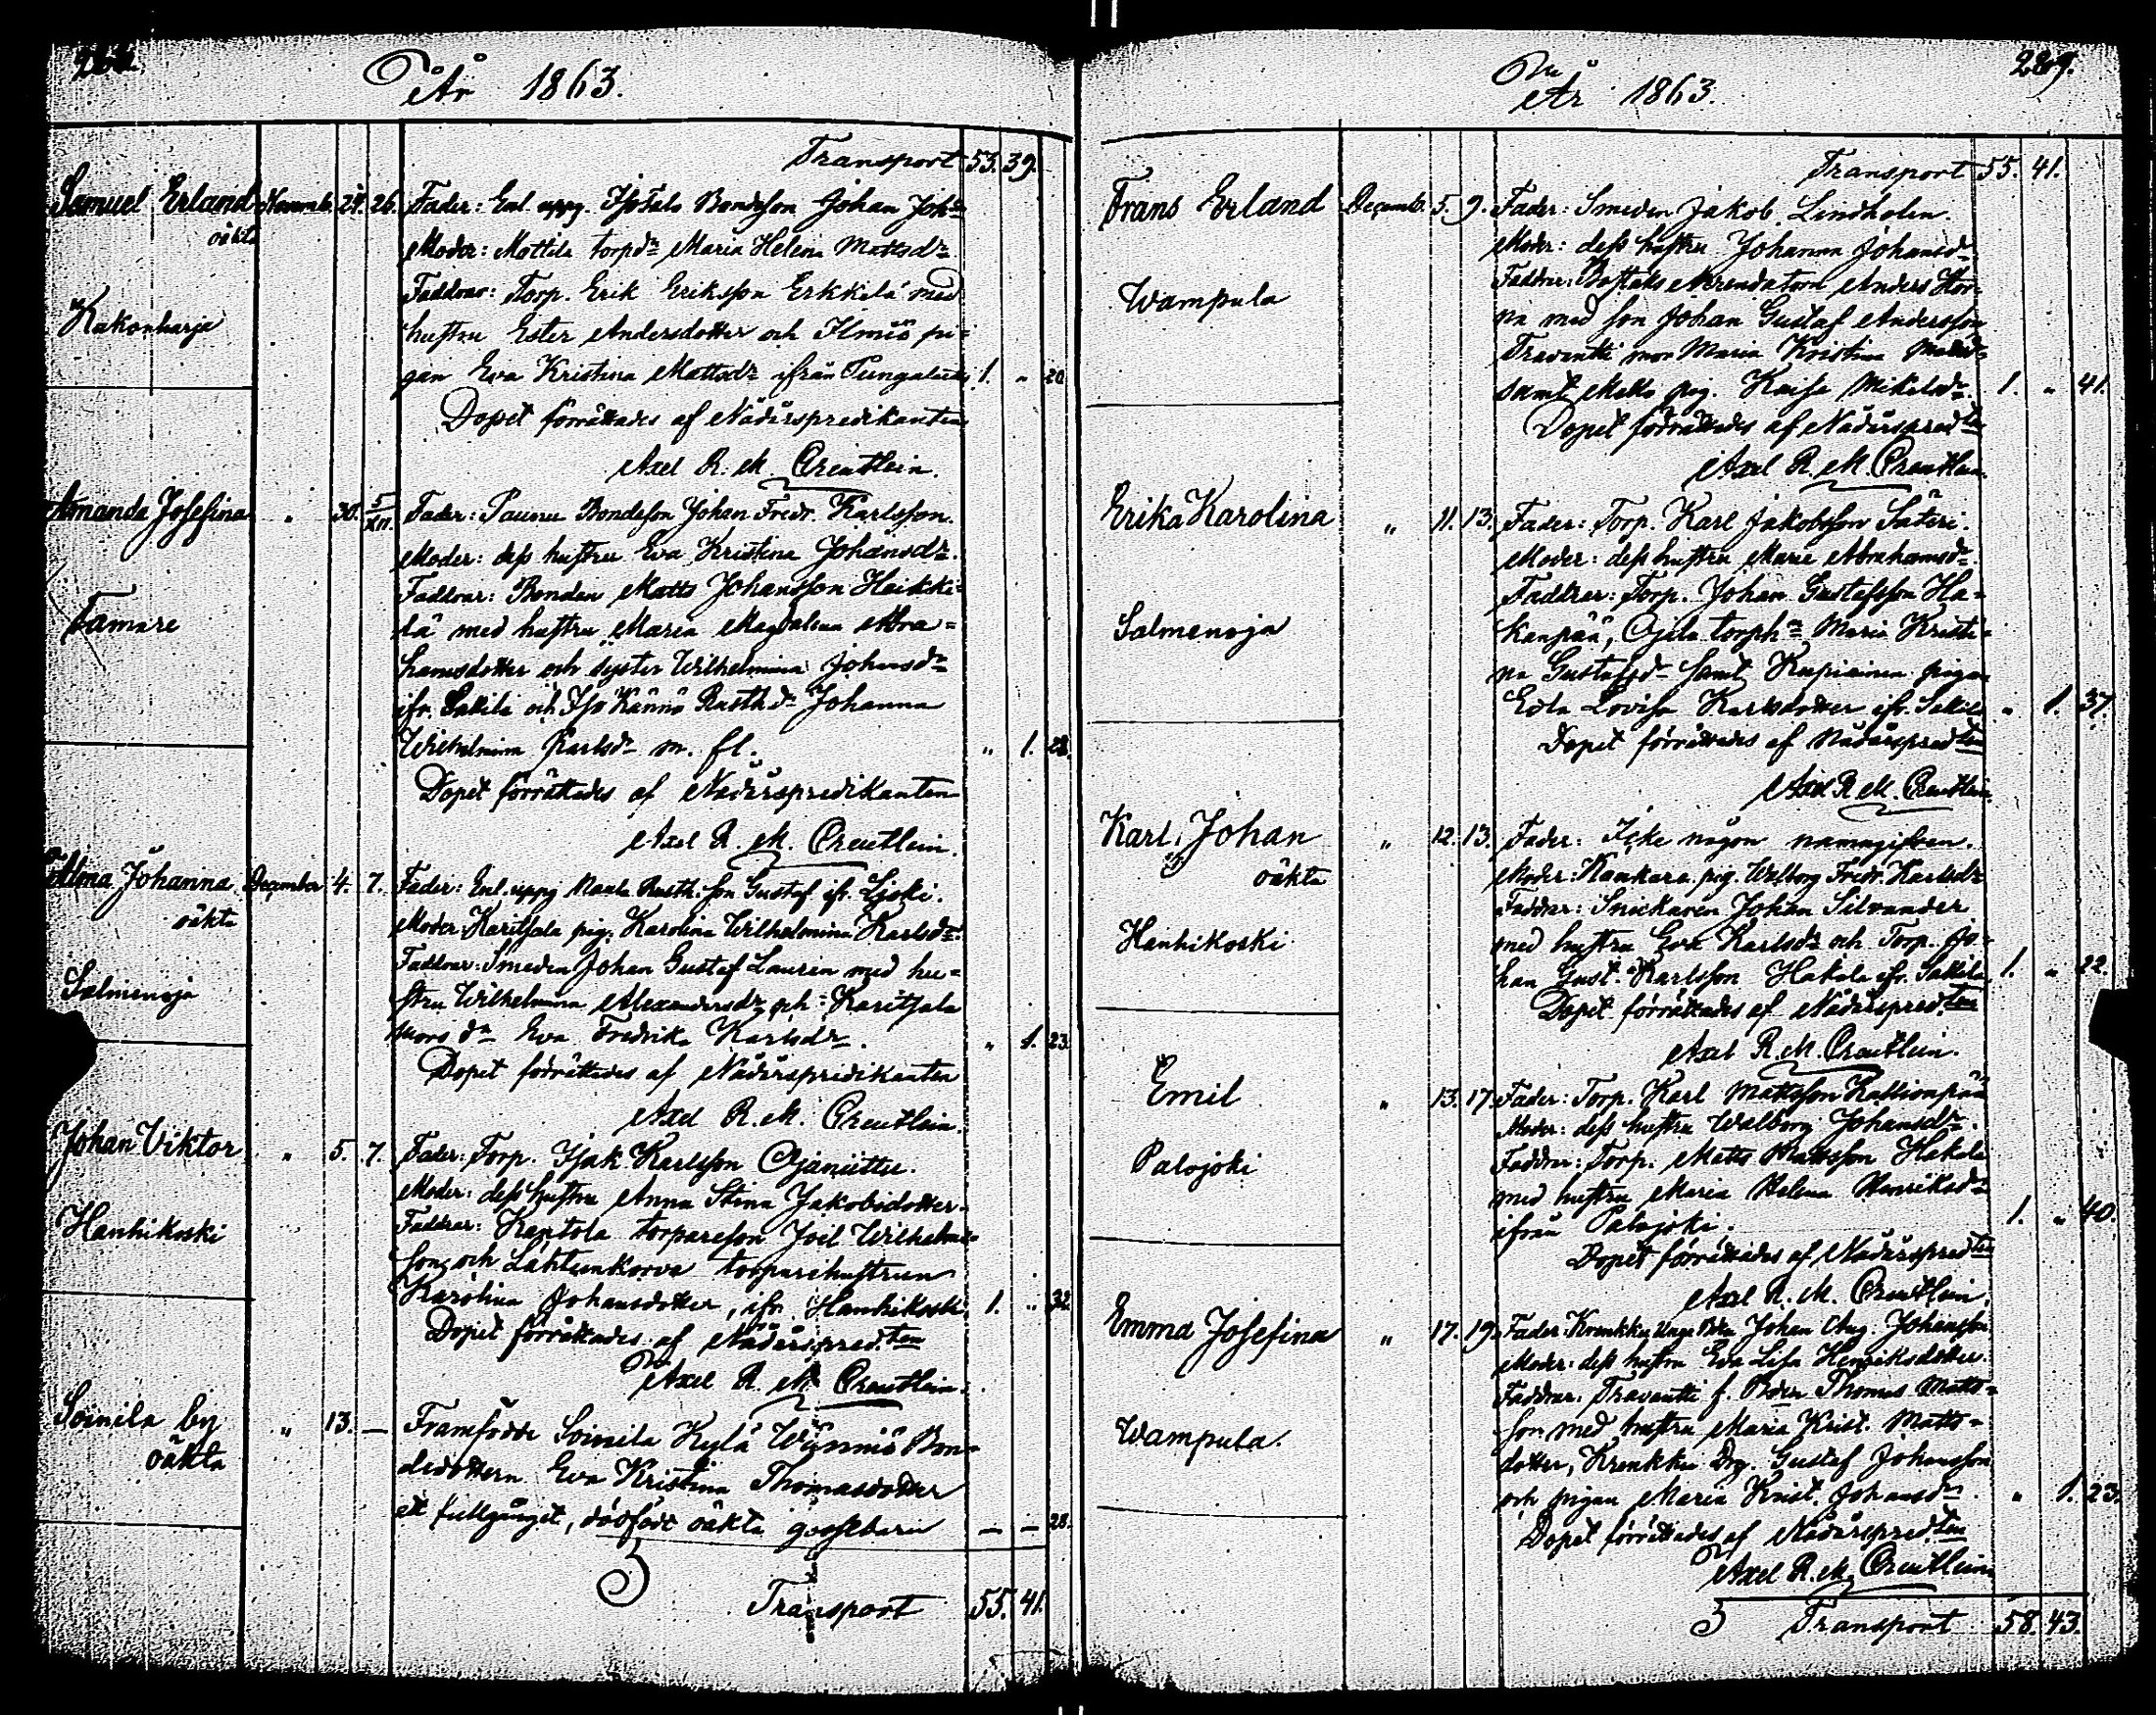 År 1863.
Transport 53. 39.
Samuel Erland Novemb. 24. 26. Fader: Enl. uppg. Isotalo Bondeson Johan Joh:
oäkta
Moder: Mattila torpdr Maria Helena Mattsdr
Faddrar: Torp. Erik Eriksson Erkkilä med
Kakonharja
hustru Ester Andersdotter och Ilmiö pi=
gan Eva Kristina Mattsdr ifrån 1. " 20.
Dopet förrättades af Nådårspredikanten
Axel R. M. Creutlein.
Amanda Josefina " 30. 5/XII. Fader: Bondeson Johan Fredr. Karlsson.
Moder: dess hustru Eva Kristina Johansdr.
Faddrar: Bonden Matts Johansson Heikki=
Tamare
lä med hustru Maria Magdalena Abra=
hamsdotter och syster Wilhelmina Johansdr
ifr. Säkilä och Iso Kännö Rusth. dr Johanna
Wilhelmina Karlsdr m. fl. " 1. 28.
Dopet förrättades af Nådårspredikanten
Axel R. M. Creutlein.
Alma Johanna December 4. 7. Fader: Enl. uppg. Rusth. son Gustaf ifr.
oäkta
Moder: Karitsala pig. Karolina Wilhelmina Karlsdr.
Faddrar: Smeden Johan Gustaf Laurén med hu=
Salmenoja
stru Wilhelmina Alexandersdr och Karitsala
mors dr Eva Fredrika Karlsdr. " 1. 23.
Dopet förrättades af Nådårspredikanten
Axel R. M. Creutlein.
Johan Viktor " 5. 7. Fader: Torp. Isak Karlsson Ojaniittu.
Moder: dess hustru Anna Stina Jakobsdotter.
Hanhikoski
Faddrar: torpareson Joel Wilhelms=
son och Lähteenkorva torparehustrun
Karolina Johansdotter, ifr. Hanhikoski 1. " 32.
Dopet förrättades af Nådårspred.ten
Axel R. M. Creutlein.
Soinila by " 13. — Framfödde Soinila Kylä Bon=
oäkta
dedottern Eva Kristina Thomasdotter
ett fullgånget, dödfödt oäkta gossebarn — — 28.
3
Transport 55. 41.
229.
År 1863.
Transport 55. 41.
Frans Erland Decemb. 5. 9. Fader: Smeden Jakob Lindholm.
Moder: dess hustru Johanna Johansdr
Faddrar: Arrendatorn Anders
Wampula
med son Johan Gustaf Andersson
Travantti mor Maria Kristina
samt pig. Kaisa Mikelsdr. 1. " 41.
Dopet förrättades af Nådårspredten
Axel R. M. Creutlein.
Erika Karolina " 11. 13. Fader: Torp. Karl Jakobsson Säteri.
Moder: dess hustru Maria Abrahamsdr.
Faddrar: Torp. Johan Gustafsson Ha=
Salmenoja
kanpää, Ojala torph. Maria Kristi=
na Gustafsdr samt pigan
Edla Lovisa Karlsdotter ifr. Säkilä " 1. 37.
Dopet förrättades af Nådårspredten
Axel R. M. Creutlein.
Karl Johan " 12. 13. Fader: Icke någon namngifven.
oäkta
Moder: Kankare pig. Walborg Fredr. Karlsdr
Faddrar: Snickaren Johan Silvander
Hanhikoski
med hustru Eva Karlsdr och Torp. Jo=
han Gust. Karlsson Hakala ifr. Säkilä 1. " 22.
Dopet förrättades af Nådårspred.ten
Axel R. M. Creutlein.
Emil " 13. 17. Fader: Torp. Karl Mattsson Kallionpää
Moder: dess hustru Walborg Johansdr.
Palojoki
Faddrar: Torp. Matts Mattsson Hakala
med hustru Maria Helena Henriksdr
ifrån Palojoki. 1. " 40.
Dopet förrättades af Nådårspredten
Axel R. M. Creutlein
Emma Josefina " 17. 19. Fader: Krenkku Unge Bdn Johan Aug. Johansson
Moder: dess hustru Eva Lisa Henriksdotter.
Faddrar: Travantti f. Bden Thomas Matts=
Wampula.
son med hustru Maria Krist. Matts=
dotter, Krenkku Drg. Gustaf Johansson
och pigan Maria Krist. Johansdr. " 1. 23.
Dopet förrättades af Nådårspred.ten
Axel R. M. Creutlein
3 Transport 58. 43.